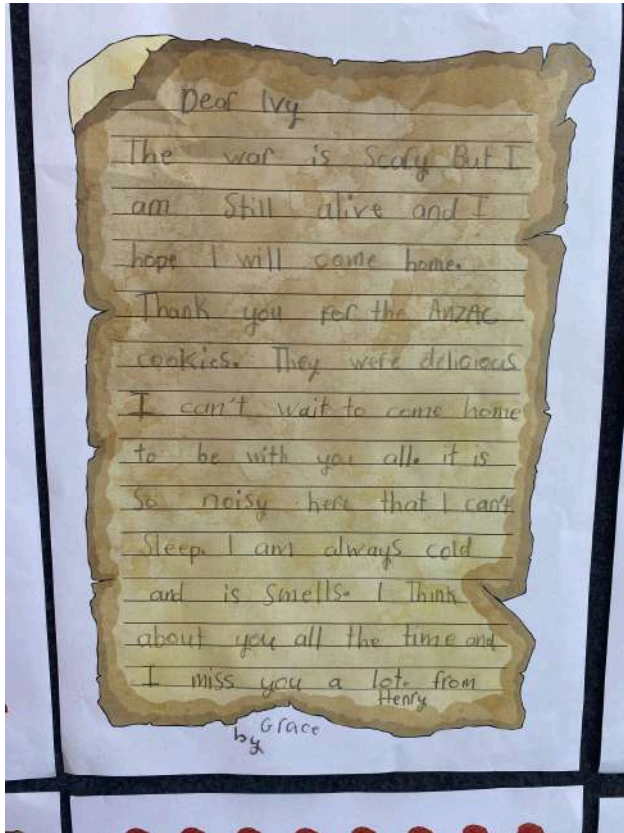 Dear Ivy
The war is Scary But I
am Still alive and I
hope I will come home.
Thank you for the ANZAC
cookies. They were delicious
I can't wait to come home
to be with you all. it is
So noisy here that I can't
Sleep. I am always cold
and is smells. I Think
about you all the time and
I miss you a lot. from
Henry
by Grace